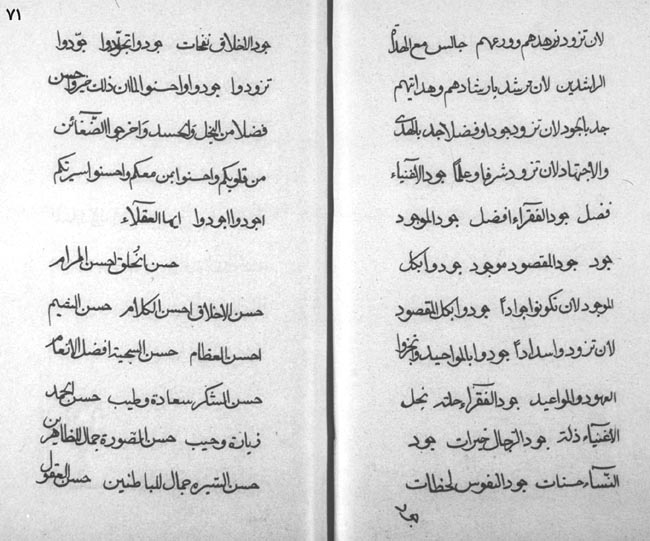 ٧١
لان تزود فى هدهم وورعهم جالس مع الهداة
الراشدين لان ترشد بارشادهم وهدايتهم
جد بالجود لان تزود جودا وفضلا جد بالهدى
والاجتهاد لان تزود شرفا وعلما جود الاغنياء
فضل جود الفقراء افضل جود الموجود
جود جود المقصود موجود جودوا بكل
الموجود لان تكونوا جوادا جودوا بكل المقصود
لان تزودوا سدادا جودوا بالمواحيد وانجزوا
العهود والمواعيد جود الفقراء حلة بخل
الاغنياء ذلة جود الرجال خيرات جود
النساء حسنات جود النفوس لحظات
جود الاخلاق نفحات جودوا تجودوا جودوا
تزودوا جودوا واحسنوا لنا ان ذلك خير واحسن
فضلا من البخل والحسد واخرجوا الضغائن
من قلوبكم واحسنوا بمن معكم واحسنوا سيرتكم
اجودوا لجودوا ايها العقلاء
حسن الخلق احسن المرام
حسن الاخلاق احسن الكلام حسن الشيم
احسن العظام حسن السجية افضل الانعام
حسن الشكر سعادة وطيب حسن الحمد
زيادة وحيب حسن الصورة جمال الظاهرين
حسن السيرة جمال للباطنين حسن العقول